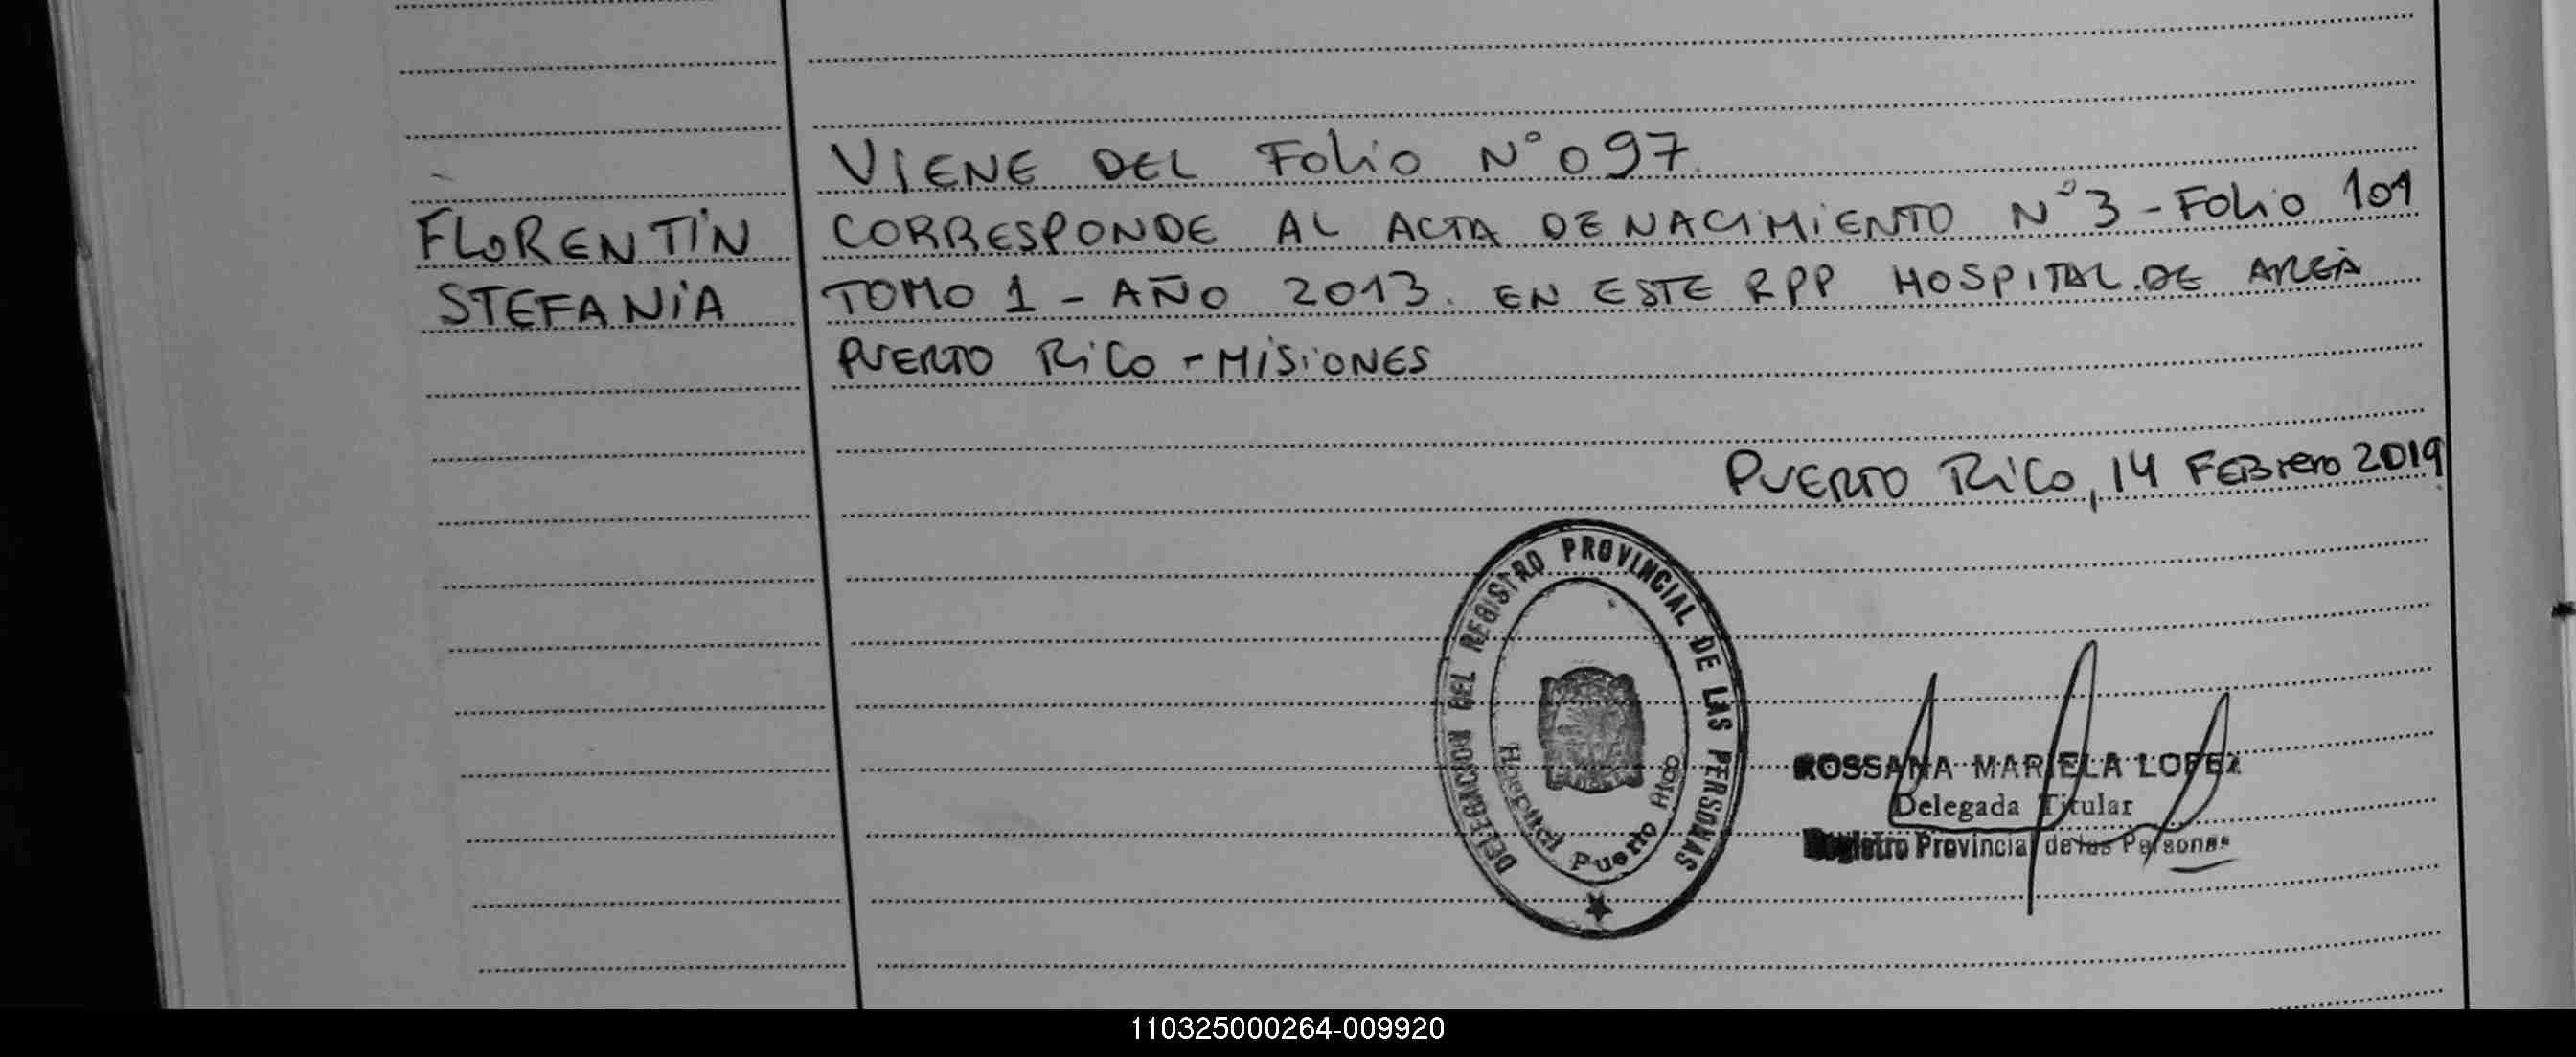 VIENE DEL Folio N°097.
FLORENTIN
STEFANIA
CORRESPONDE AL ACTA DE NACIMIENTO N°3-Folio 101
TOMO 1 - AÑO 2013. EN ESTE RPP HOSPITAL.DE AREA
PUERTO RiCo - MISIONES
PUERTO RiCo, 14 FEBrero 2019
DELEGACION DEL REGISTRO PROVINCIAL DE LAS PERSONAS
Hospital Puerto Rico
ROSSANA MARIELA LOPEZ
Delegada Titular
Registro Provincial de las Personas
110325000264-009920